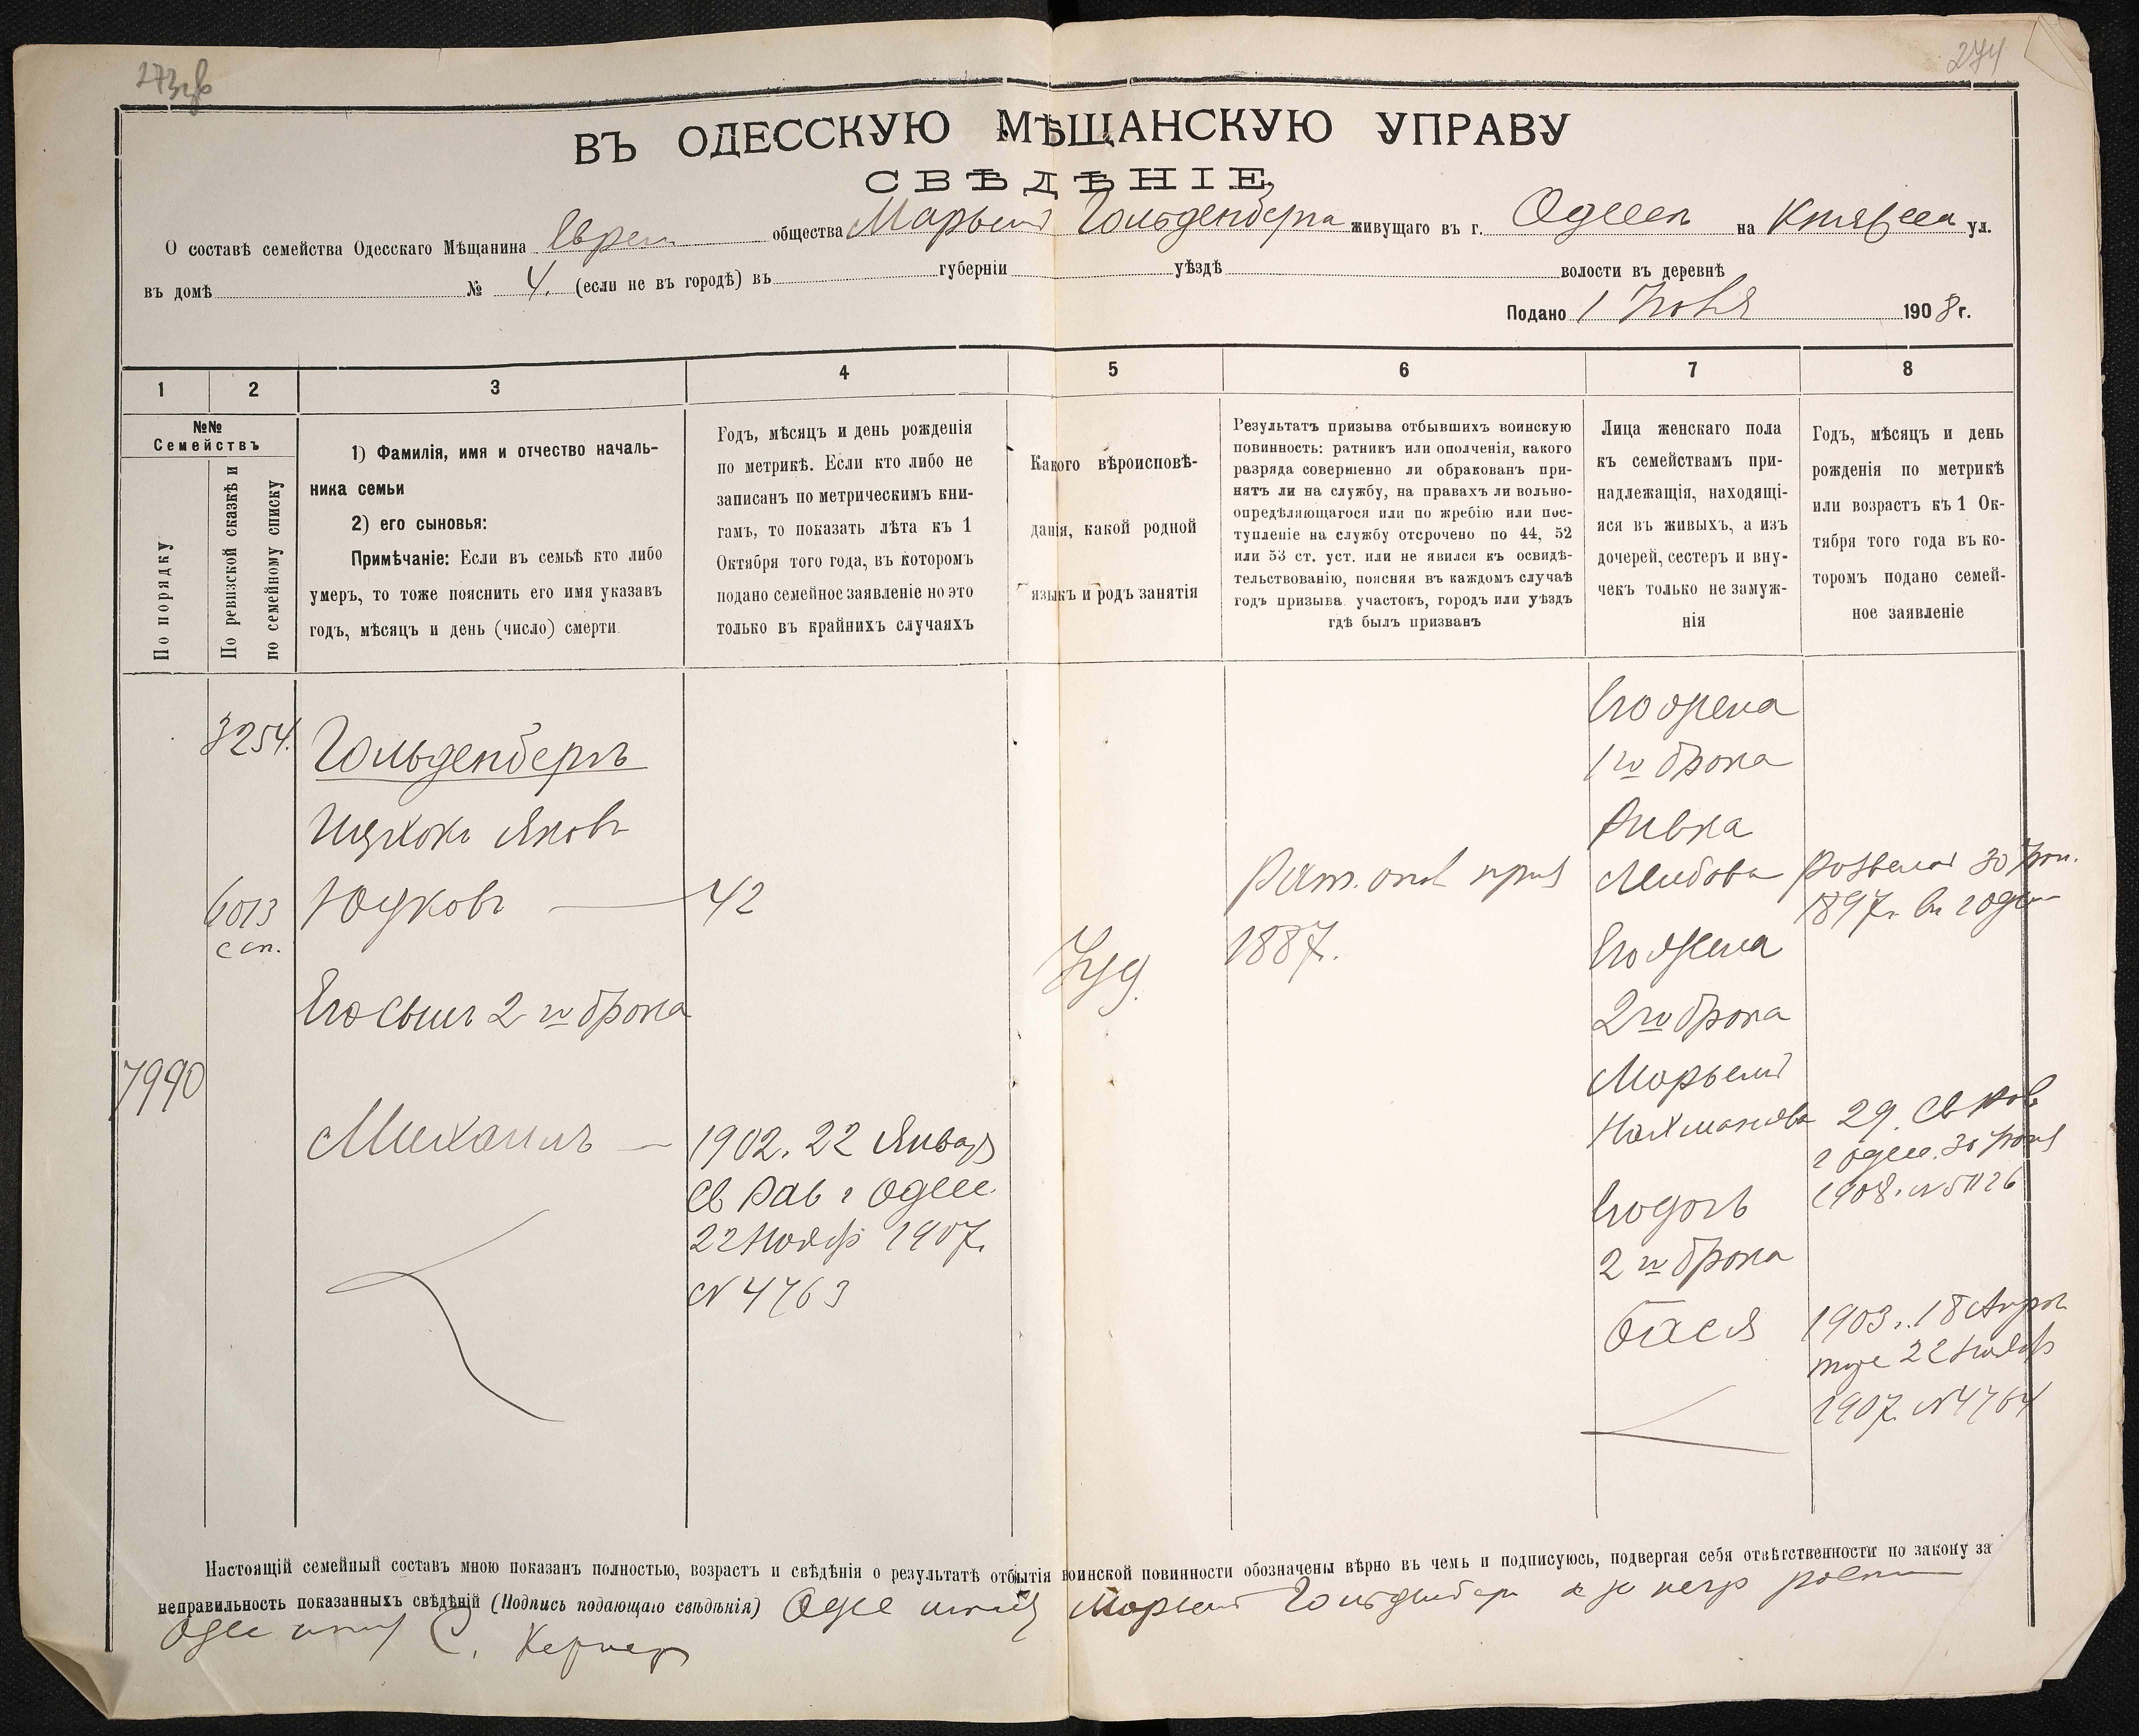 274
ВЪ ОДЕССКУЮ МѢЩАНСКУЮ УПРАВУ
СВѢДѢНІЕ
О составѣ семейства Одесскаго Мѣщанина Еврей общества Марьемъ Гольденберга живущаго въ г. Одессѣ на ул.
въ домѣ № 4. (если не въ городѣ) въ губерніи уѣздѣ волости въ деревнѣ
Подано 1 1908 г.
1 2 3 4 5 6 7 8
№№ Семействъ
По порядку
По ревизской сказкѣ и по семейному списку
1) Фамилія, имя и отчество началь-
ника семьи
2) его сыновья:
Примѣчаніе: Если въ семьѣ кто либо
умеръ, то тоже пояснить его имя указавъ
годъ, мѣсяцъ и день (число) смерти.
Годъ, мѣсяцъ и день рожденія
по метрикѣ. Если кто либо не
записанъ по метрическимъ кни-
гамъ, то показать лѣта къ 1
Октября того года, въ которомъ
подано семейное заявленіе но это
только въ крайнихъ случаяхъ
Какого вѣроисповѣ-
данія, какой родной
языкъ и родъ занятія
Результатъ призыва отбывшихъ воинскую
повинность: ратникъ или ополченія, какого
разряда совершенно ли обракованъ при-
нятъ ли на службу, на правахъ ли вольно-
опредѣляющагося или по жребію или пос-
тупленіе на службу отсрочено по 44, 52
или 53 ст. уст. или не явился къ освидѣ-
тельствованію, поясняя въ каждомъ случаѣ
годъ призыва участокъ, городъ или уѣздъ
гдѣ былъ призванъ
Лица женскаго пола
къ семействамъ при-
надлежащія, находящі-
яся въ живыхъ, а изъ
дочерей, сестеръ и вну-
чекъ только не замуж-
нія
Годъ, мѣсяцъ и день
рожденія по метрикѣ
или возрастъ къ 1 Ок-
тября того года въ ко-
торомъ подано семей-
ное заявленіе
3254.
Гольденбергъ
Ицхокъ Яковъ
6013
с сп.
Юдковъ — 42
Его сынъ 2 го брака
7990
Михаилъ —
1902. 22 Января
св Рав г Одесс.
22 Ноябр 1907.
№ 4763
Іуд.
Рат. опол приз
1887.
Его жена
1 го брака
Ривка
Лейбова
30
1897г. въ г Одес
Его жена
2 го брака
Марьемъ
Нахманова
29. св Рав
г Одесс. 30
1908. № 5026
Его дочь
2 го брака
Бася
1903. 18 Апрел
тоже 22 Ноябр
1907. № 4764
Настоящій семейный составъ мною показанъ полностью, возрастъ и свѣдѣнія о результатѣ отбытія воинской повинности обозначены вѣрно въ чемъ и подписуюсь, подвергая себя отвѣтственности по закону за
неправильность показанныхъ свѣдѣній (Подпись подающаго свѣдѣнія) Одес Марьемъ Гольденберг а за негр
Одес С. Кернер